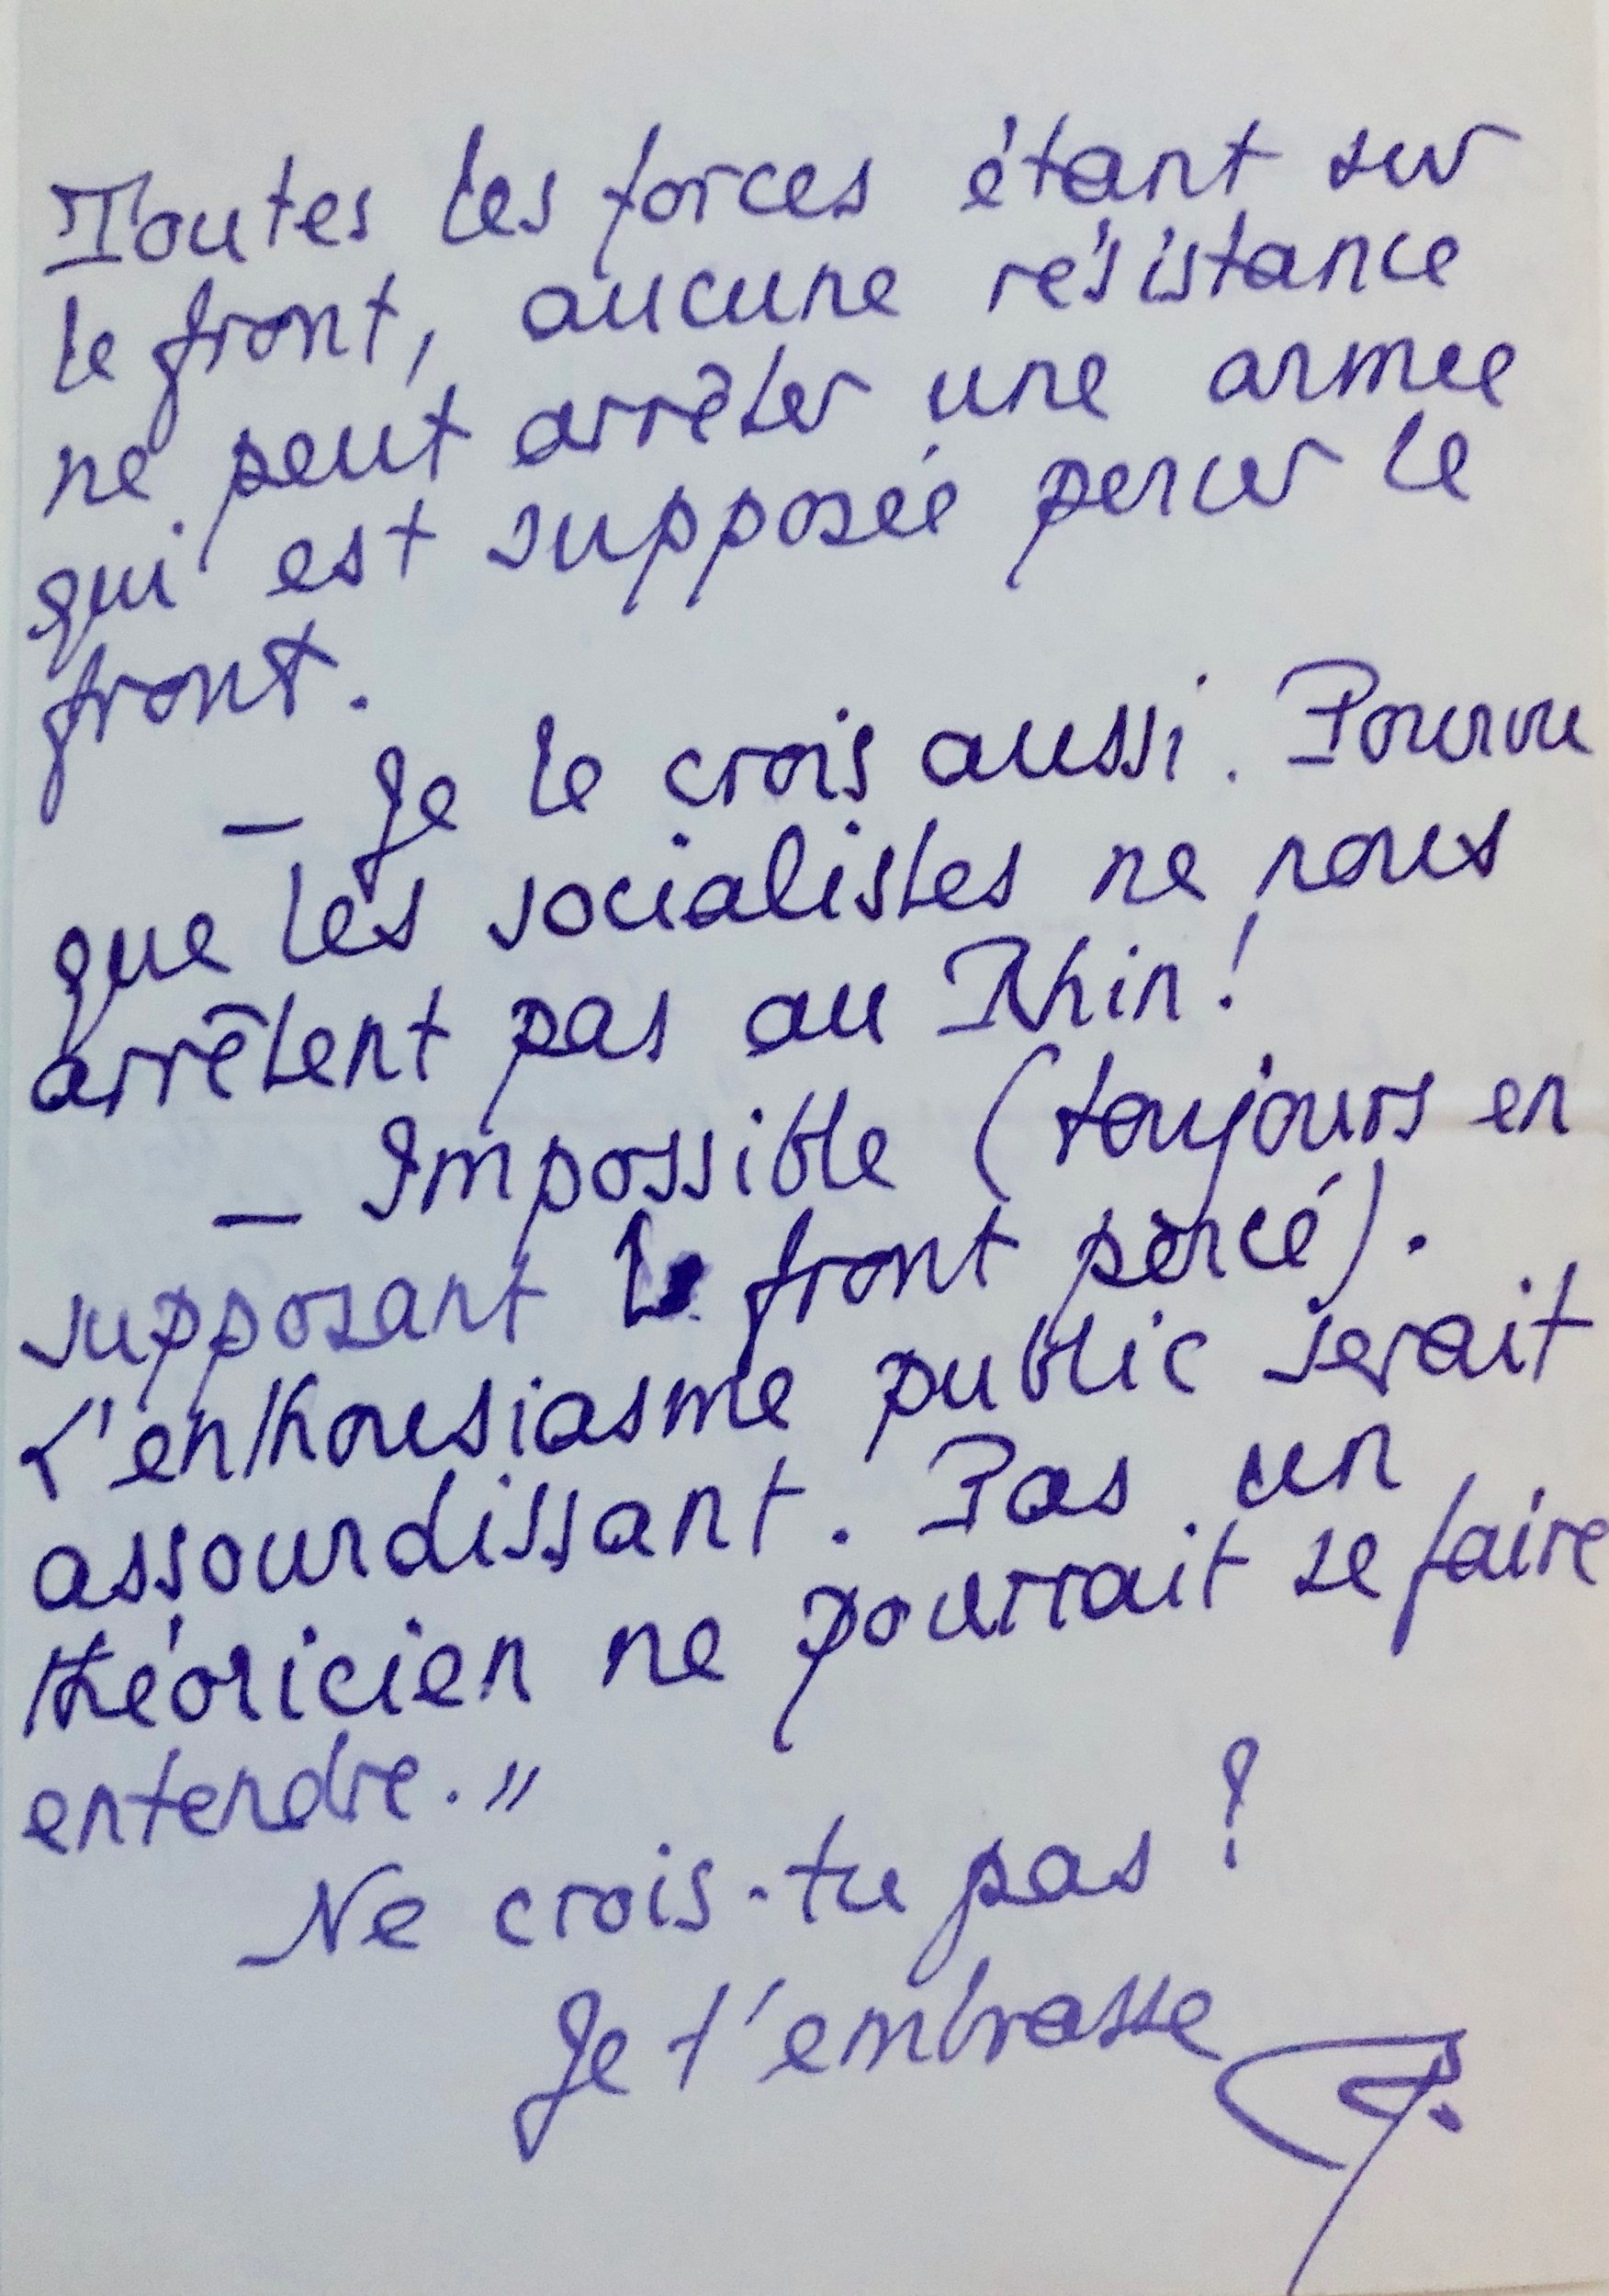 Toutes les forces étant sur
le front, aucune résistance
ne peut arrêter une armee
qui est supposée percer le
front.
– Je le crois aussi. Pourvu
que les socialistes ne nous
arrêtent pas au Rhin !
– Impossible (toujours en
supposant le front percé).
L'enthousiasme public serait
assourdissant. Pas un
théoricien ne pourrait se faire
entendre."
Ne crois-tu pas ?
Je t'embrasse